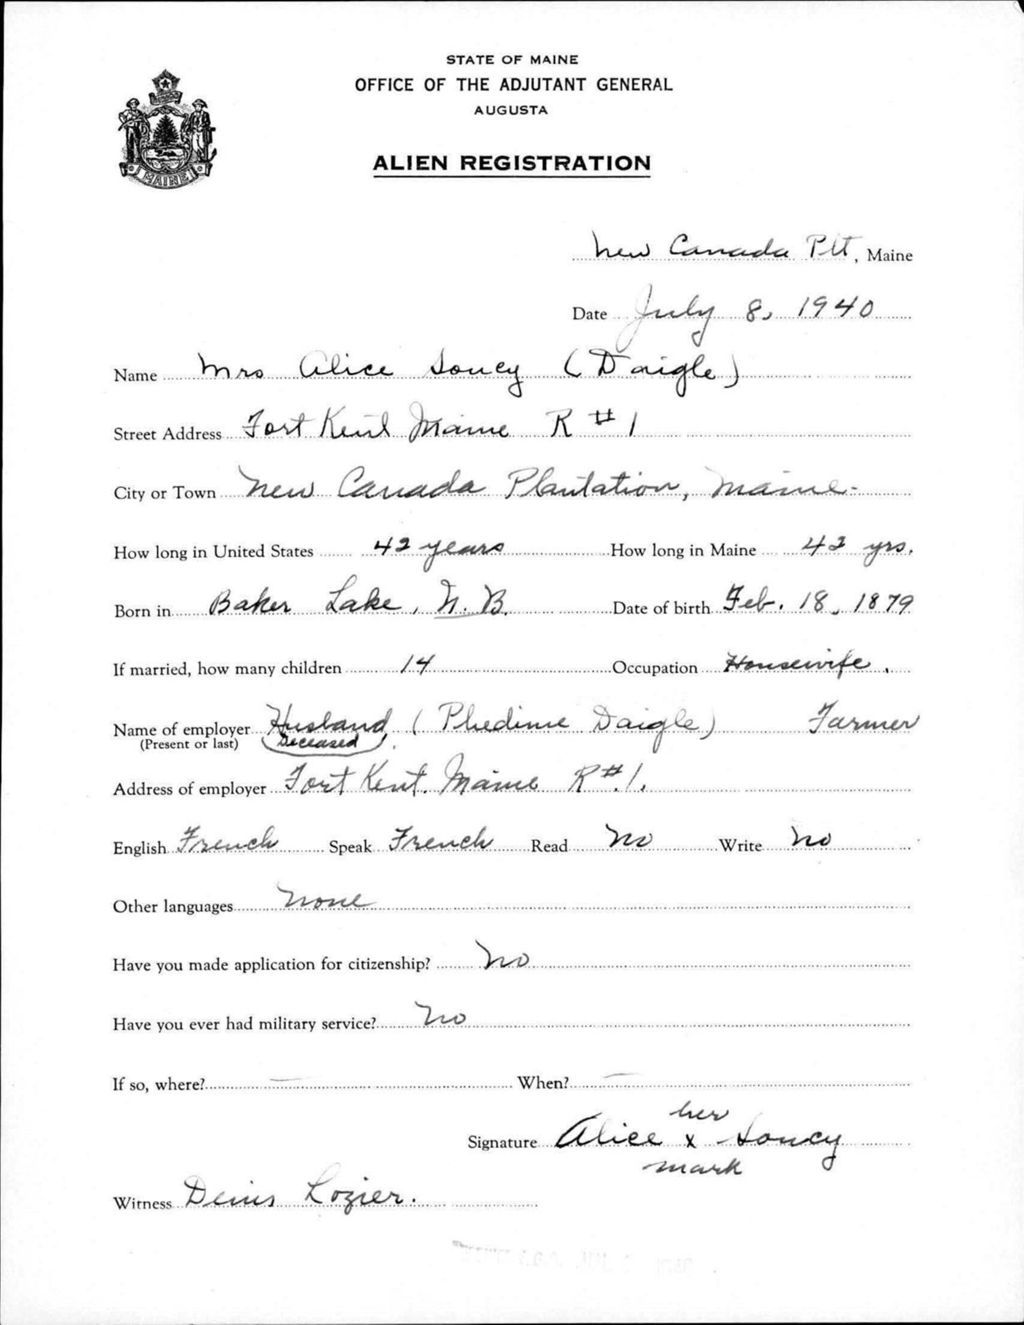 STATE OF MAINE
OFFICE OF THE ADJUTANT GENERAL
AUGUSTA
MAINE
ALIEN REGISTRATION
New Canada Plt, Maine
Date July 8, 1940
Name Mrs Alice Soucy (Daigle)
Street Address Fort Kent Maine R #1
City or Town New Canada Plantation, Maine.
How long in United States 42 years How long in Maine 42 yrs.
Born in Baker Lake, N.B. Date of birth Feb. 18, 1879
If married, how many children 14 Occupation Housewife.
Name of employer Husband (Phedime Daigle) Farmer
(Present or last) Deceased
Address of employer Fort Kent. Maine R#1.
English French Speak French Read No Write No
Other languages None
Have you made application for citizenship? No
Have you ever had military service? No
If so, where? — When? —
her
Signature Alice x Soucy
mark
Witness Denis Lozier.